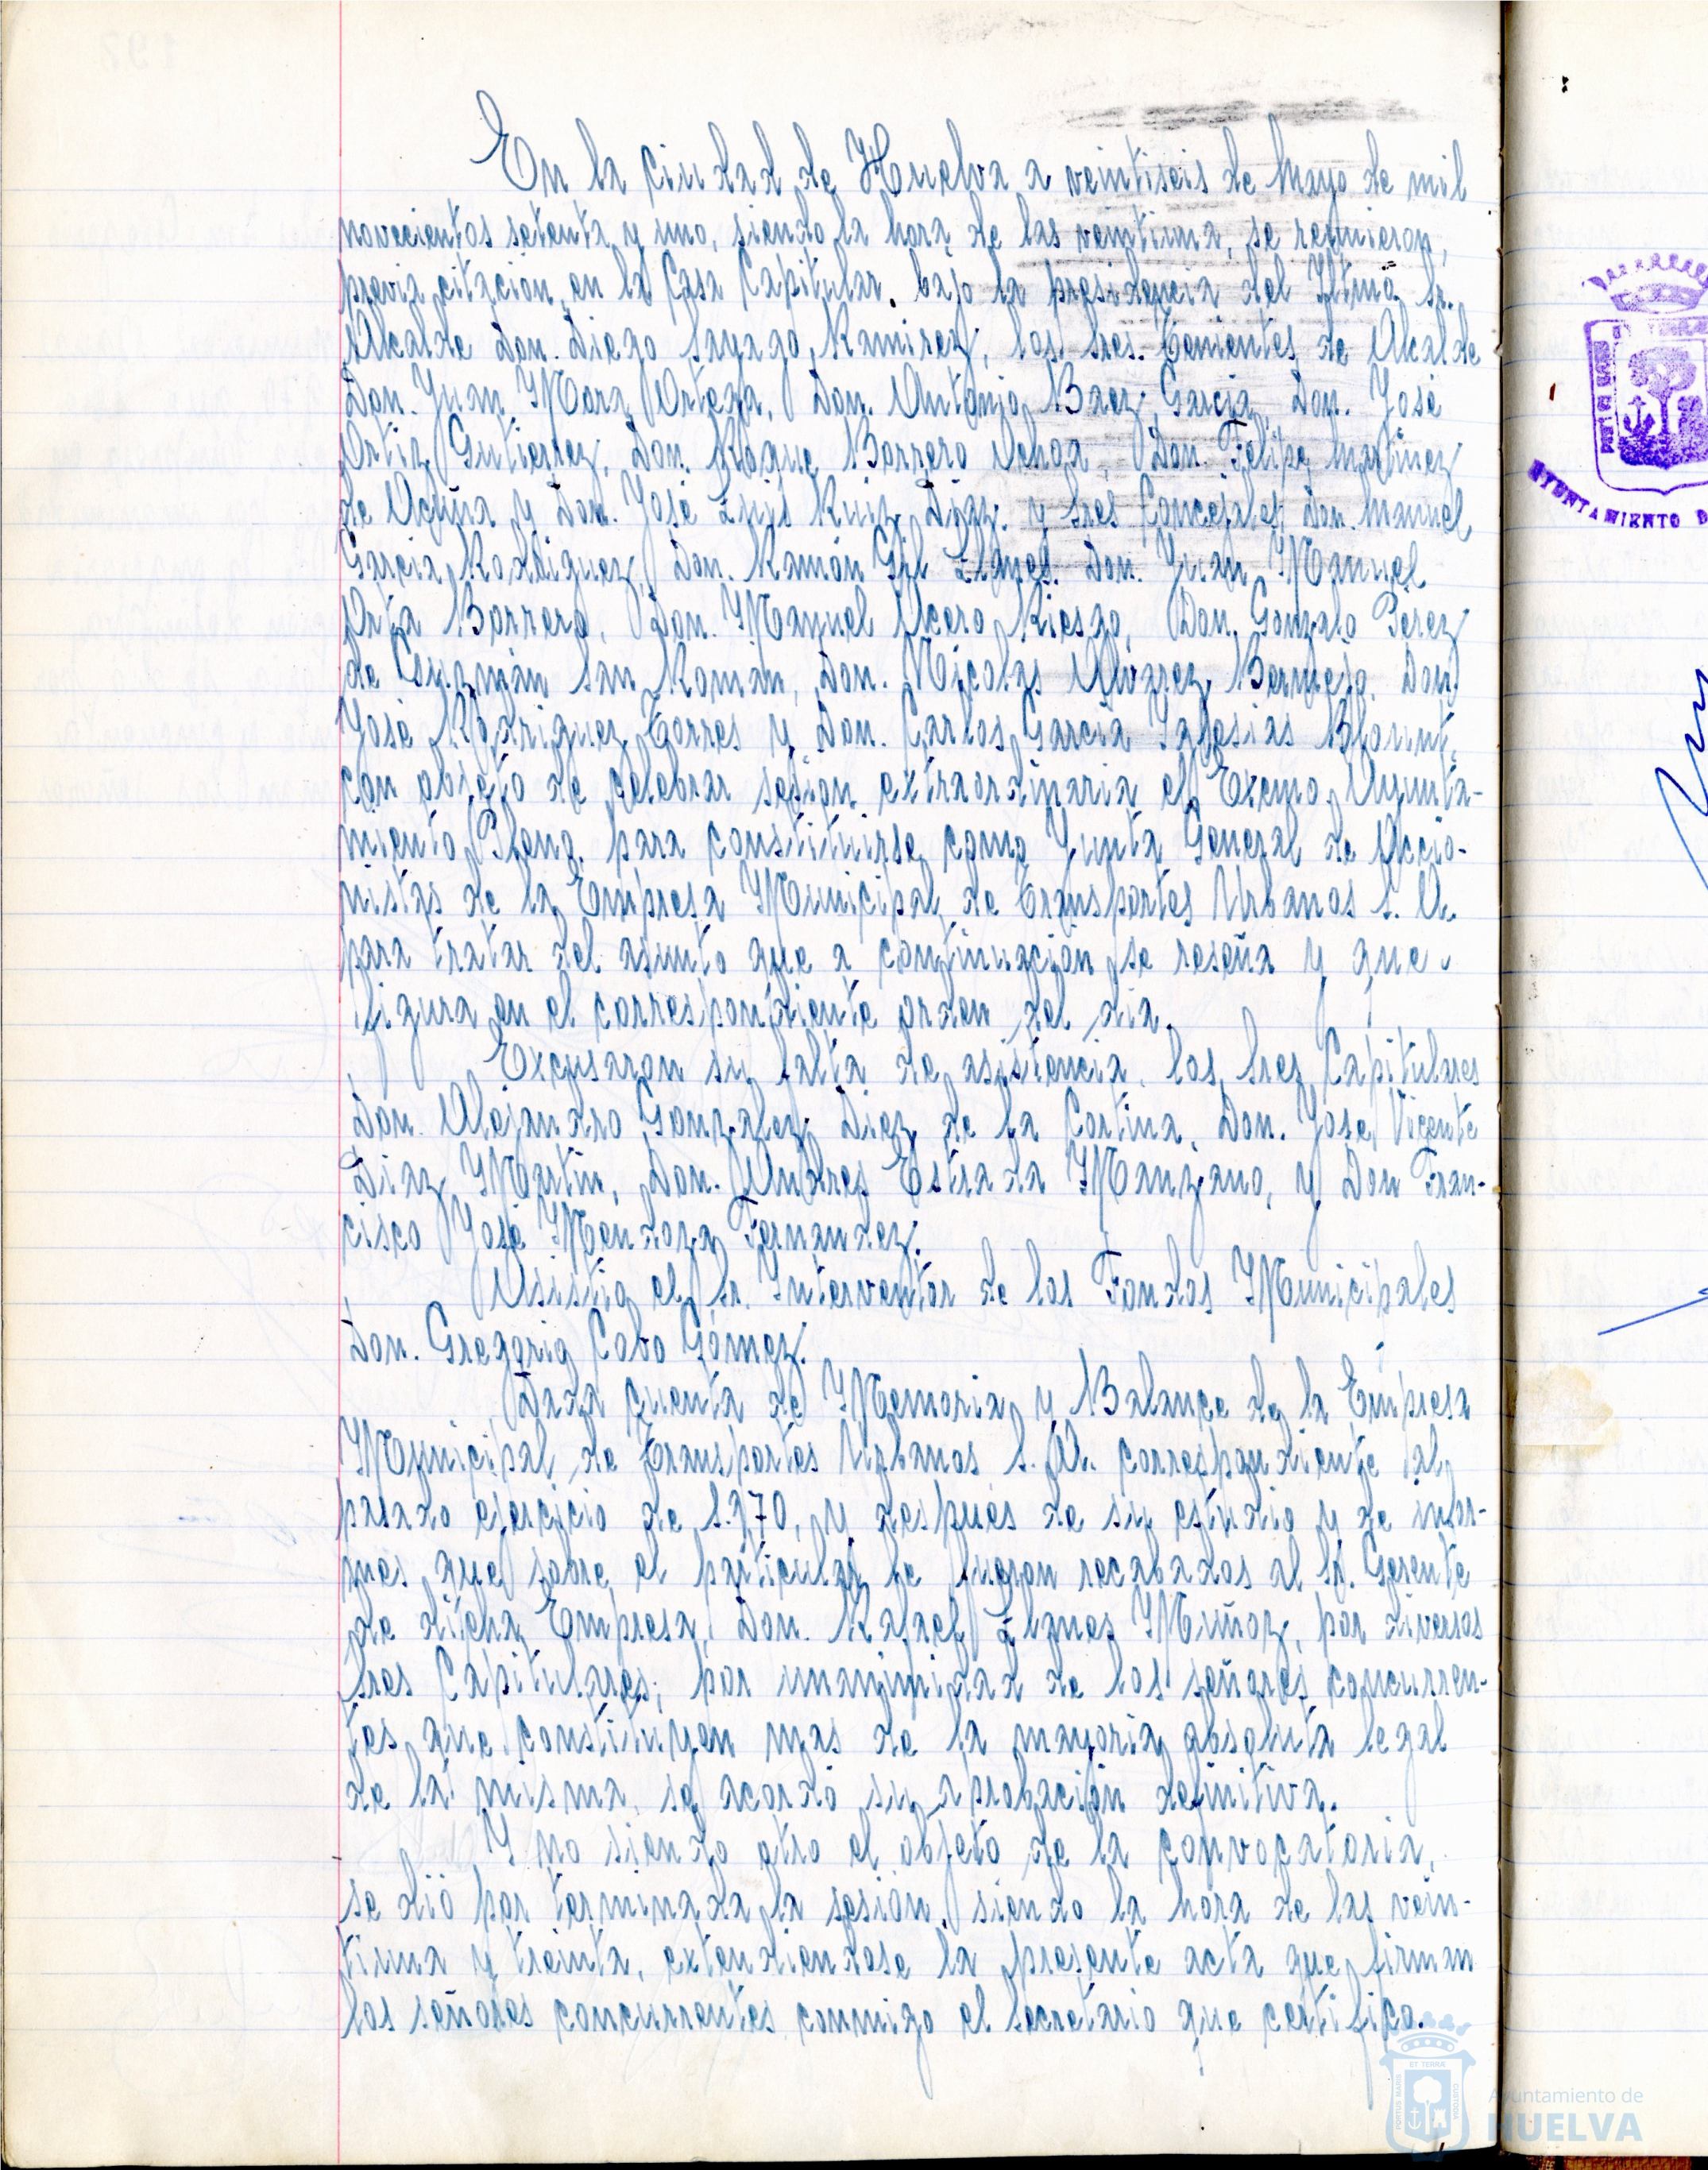 En la ciudad de Huelva a veintiseis de Mayo de mil
novecientos setenta y uno, siendo la hora de las veintiuna, se reunieron,
previa citación, en la Casa Capitular, bajo la presidencia del Iltmo. Sr.
Alcalde Don. Diego Sayago Ramirez, los Sres. Tenientes de Alcalde
Don. Juan Mora Ortega, Don. Antonio Baez Garcia, Don. José
Ortiz Gutierrez, Don. Roque Barrero Ochoa, Don. Felipe Martinez
de Acuña y Don. José Luis Ruiz Diaz, y Sres Concejales, Don. Manuel
Garcia Rodriguez, Don. Ramón Gil Llanes, Don. Juan Manuel
Orta Borrero, Don. Manuel Acero Riesgo, Don. Gonzalo Pérez
de Guzmán San Román, Don. Nicolas Alvarez Bermejo, Don
José Rodriguez Torres y Don. Carlos Garcia Iglesias Blount,
con objeto de celebrar sesión extraordinaria el Excmo. Ayunta-
miento Pleno, para constituirse como Junta General de Accio-
nistas de la Empresa Municipal de Transportes Urbanos S. A.
para tratar del asunto que a continuación se reseña y que
figura en el correspondiente orden del dia.
Excusaron su falta de asistencia, los Sres Capitulares
Don. Alejandro Gonzalez Diez de la Cortina, Don. José Vicente
Diaz Martin, Don. Andres Estrada Manzano, y Don Fran-
cisco José Mendoza Fernandez.
Asistio el Sr. Interventor de los Fondos Municipales
Don. Gregorio Cobo Gómez.
Dada cuenta de Memoria y Balance de la Empresa
Municipal de Transportes Urbanos S. A. correspondiente al
pasado ejercicio de 1.970, y después de su estudio y de infor-
mes que sobre el particular le fueron recabados al Sr. Gerente
de dicha Empresa, Don. Rafael Llanes Muñoz, por diversos
Sres Capitulares; por unanimidad de los señores concurren-
tes que constituyen mas de la mayoria absoluta legal
de la misma, se acordó su aprobación definitiva.
Y no siendo otro el objeto de la convocatoria,
se dió por terminada la sesión, siendo la hora de las vein-
tiuna y treinta, extendiendose la presente acta que firman
los señores concurrentes conmigo el Secretario que certifico.
AYUNTAMIENTO D
Ayuntamiento de
HUELVA